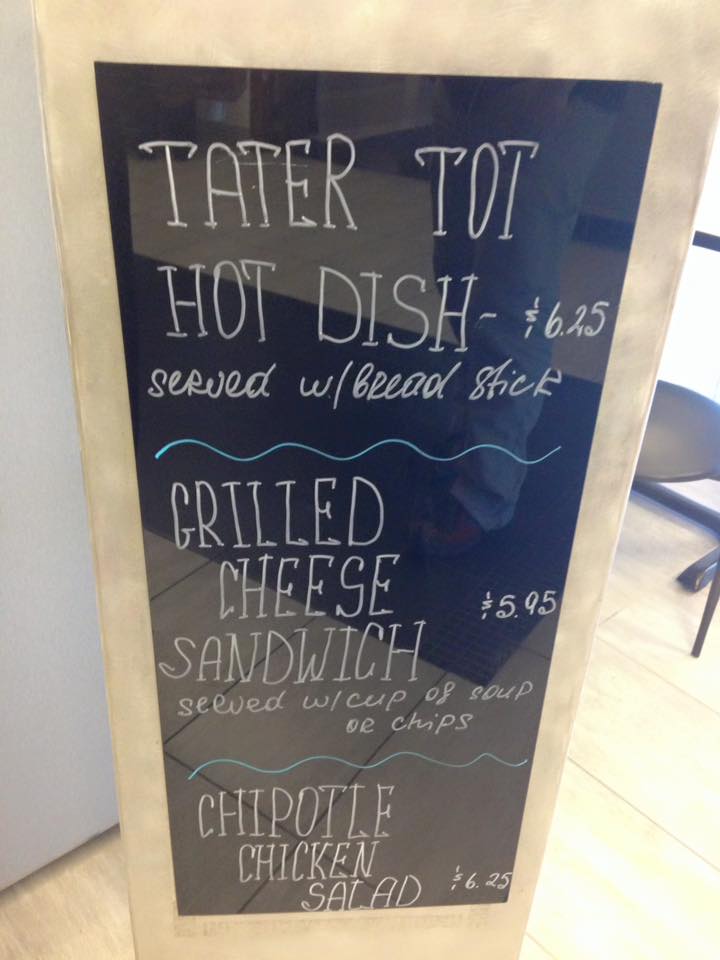 TATER TOT
HOT DISH- $6.25
served w/bread stick
GRILLED
CHEESE $5.95
SANDWICH
served w/cup of soup
or chips
CHIPOTLE
CHICKEN
SALAD $6.25